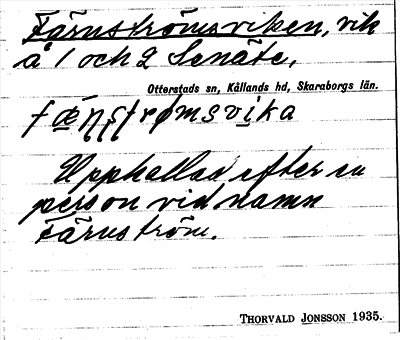 Färnströmsviken, vik
å 1 och 2 Senäte,
Otterstads sn, Kållands hd, Skaraborgs län.
fæɳʂtrømsvi̱ka
Uppkallad efter en
person vid namn
Färnström.
THORVALD JONSSON 1935.